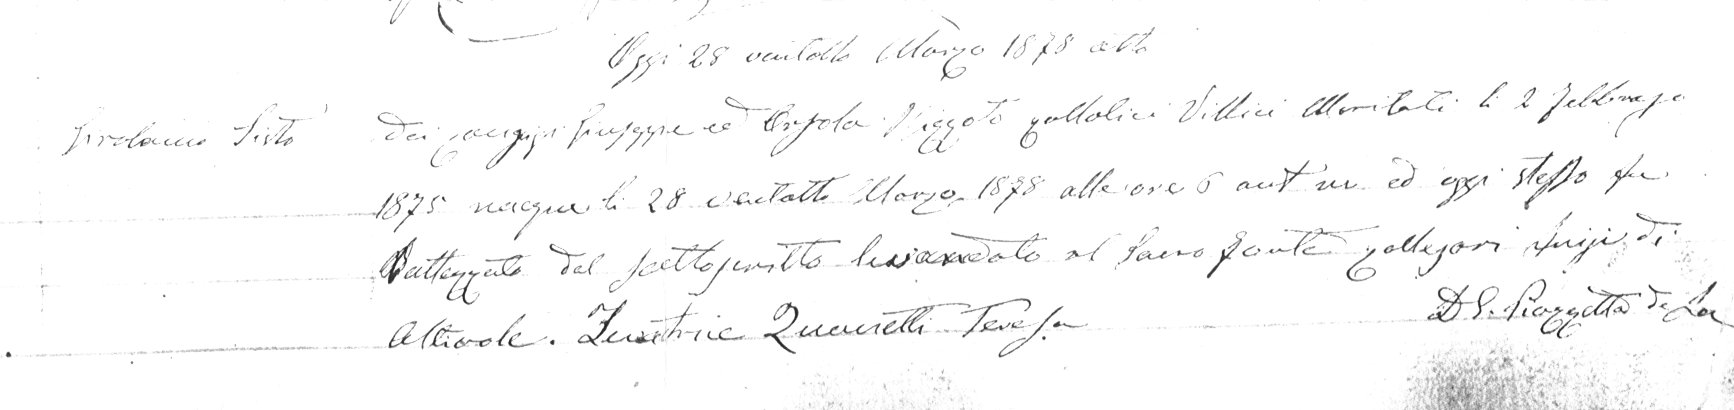 Oggi 28 ventotto Marzo 1878 otto
Girolamo Sisto dei coniugi Giuseppe ed Orsola Pizzoto Cattolici Villici Maritati li 2 Febbrajo
1875 nacque li 28 ventotto Marzo 1878 alle ore 6 ant m ed oggi stesso fu
Battezzato dal sottoscritto levandolo al Sacro Fonte Collesori Luigi di
Altivole. Levatrice Quaresetti Teresa
D G. Piazzetta